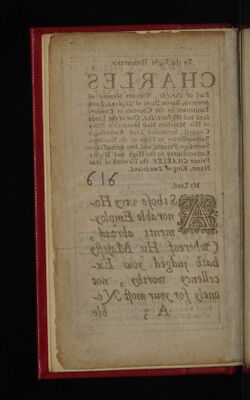 To the Right Honourable
CHARLES
Earl of Carlisle, Viscount Howard of
Morpeth, Baron Dacre of Gilsland, Lord
Lieutenant in the Counties of Cumber-
land and Westmorland, One of the Lords
of His Majesties Most Honourable Privy
Prince CHARLES the Eleventh of that
Name, King of Sweeland.
My Lord,
AS above very Ho-
norable Employ-
ments abroad,
(whereof His Majesty
hath judged your Ex-
cellency worthy, not
onely for your most No-
A 3 ble